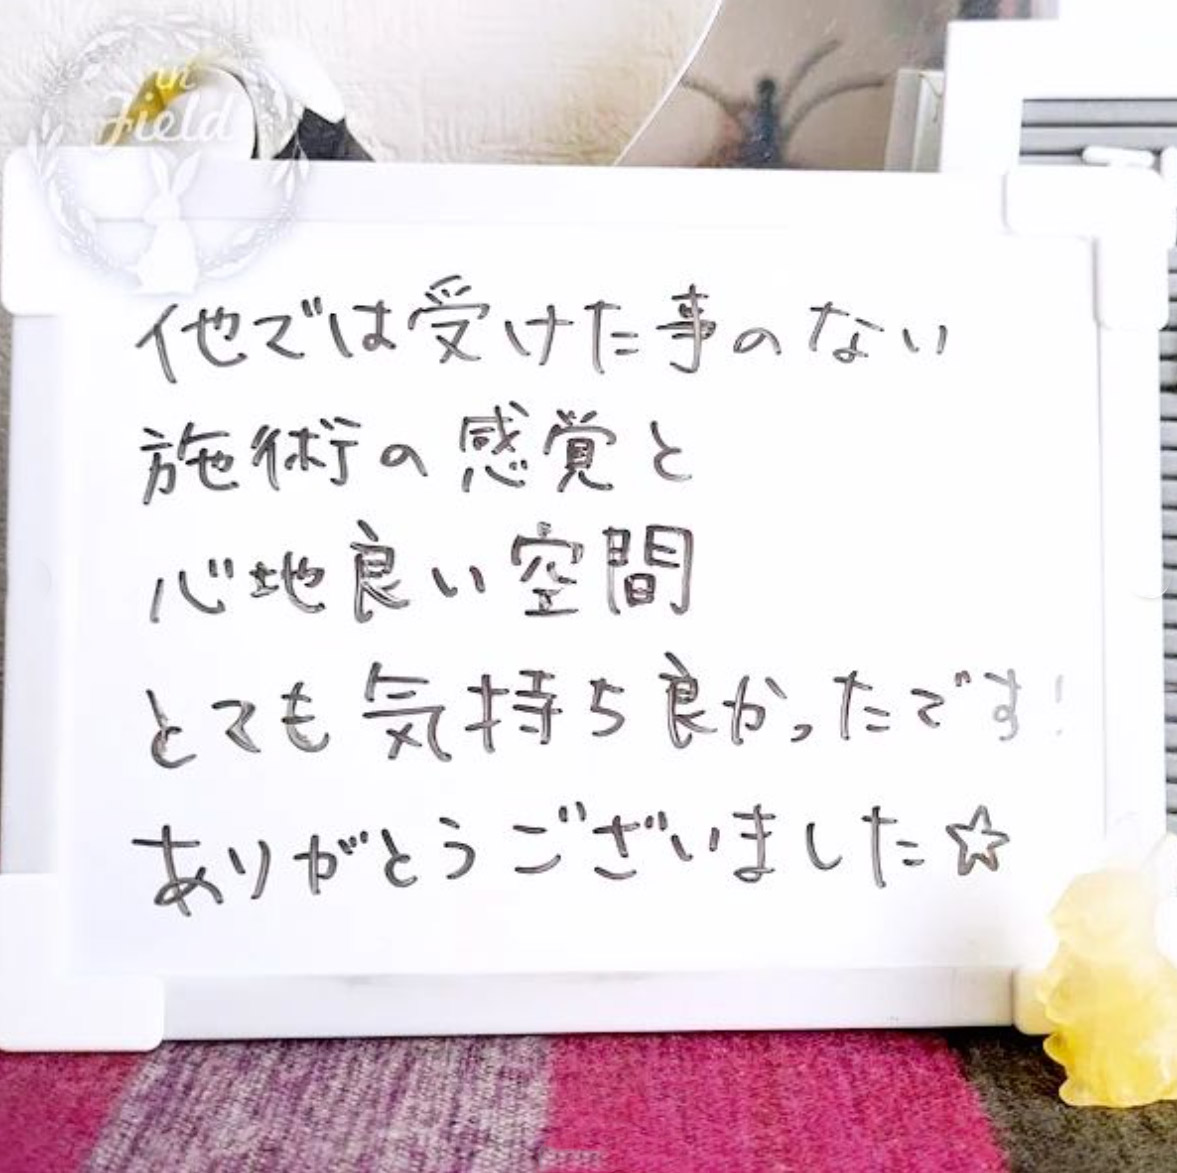 in
Field
他では受けた事のない
施術の感覚と
心地良い空間
とても気持ち良かったです!
ありがとうございました☆